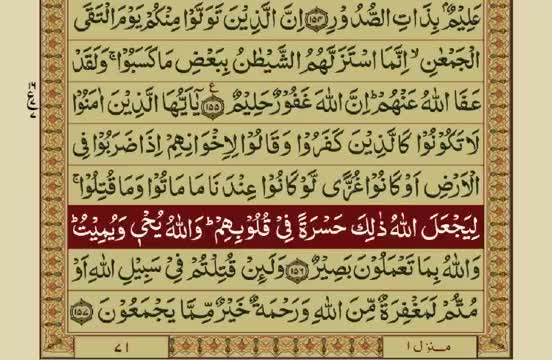 عَلِيْمٌۢ بِذَاتِ الصُّدُوْرِ ﴿۱۵۴﴾ اِنَّ الَّذِيْنَ تَوَلَّوْا مِنْكُمْ يَوْمَ الْتَقَى
الْجَمْعٰنِ ۙ اِنَّمَا اسْتَزَلَّهُمُ الشَّيْطٰنُ بِبَعْضِ مَا كَسَبُوْا ۚ وَلَقَدْ
عَفَا اللّٰهُ عَنْهُمْ ؕ اِنَّ اللّٰهَ غَفُوْرٌ حَلِيْمٌ ﴿۱۵۵﴾ يٰۤاَيُّهَا الَّذِيْنَ اٰمَنُوْا
لَا تَكُوْنُوْا كَالَّذِيْنَ كَفَرُوْا وَقَالُوْا لِاِخْوَانِهِمْ اِذَا ضَرَبُوْا فِى
الْاَرْضِ اَوْ كَانُوْا غُزًّى لَّوْ كَانُوْا عِنْدَنَا مَا مَاتُوْا وَمَا قُتِلُوْا ۚ
لِيَجْعَلَ اللّٰهُ ذٰلِكَ حَسْرَةً فِىْ قُلُوْبِهِمْ ؕ وَاللّٰهُ يُحْىٖ وَيُمِيْتُ ؕ
وَاللّٰهُ بِمَا تَعْمَلُوْنَ بَصِيْرٌ ﴿۱۵۶﴾ وَلَئِنْ قُتِلْتُمْ فِىْ سَبِيْلِ اللّٰهِ اَوْ
مُتُّمْ لَمَغْفِرَةٌ مِّنَ اللّٰهِ وَرَحْمَةٌ خَيْرٌ مِّمَّا يَجْمَعُوْنَ ﴿۱۵۷﴾
منزل ۱
۷۱